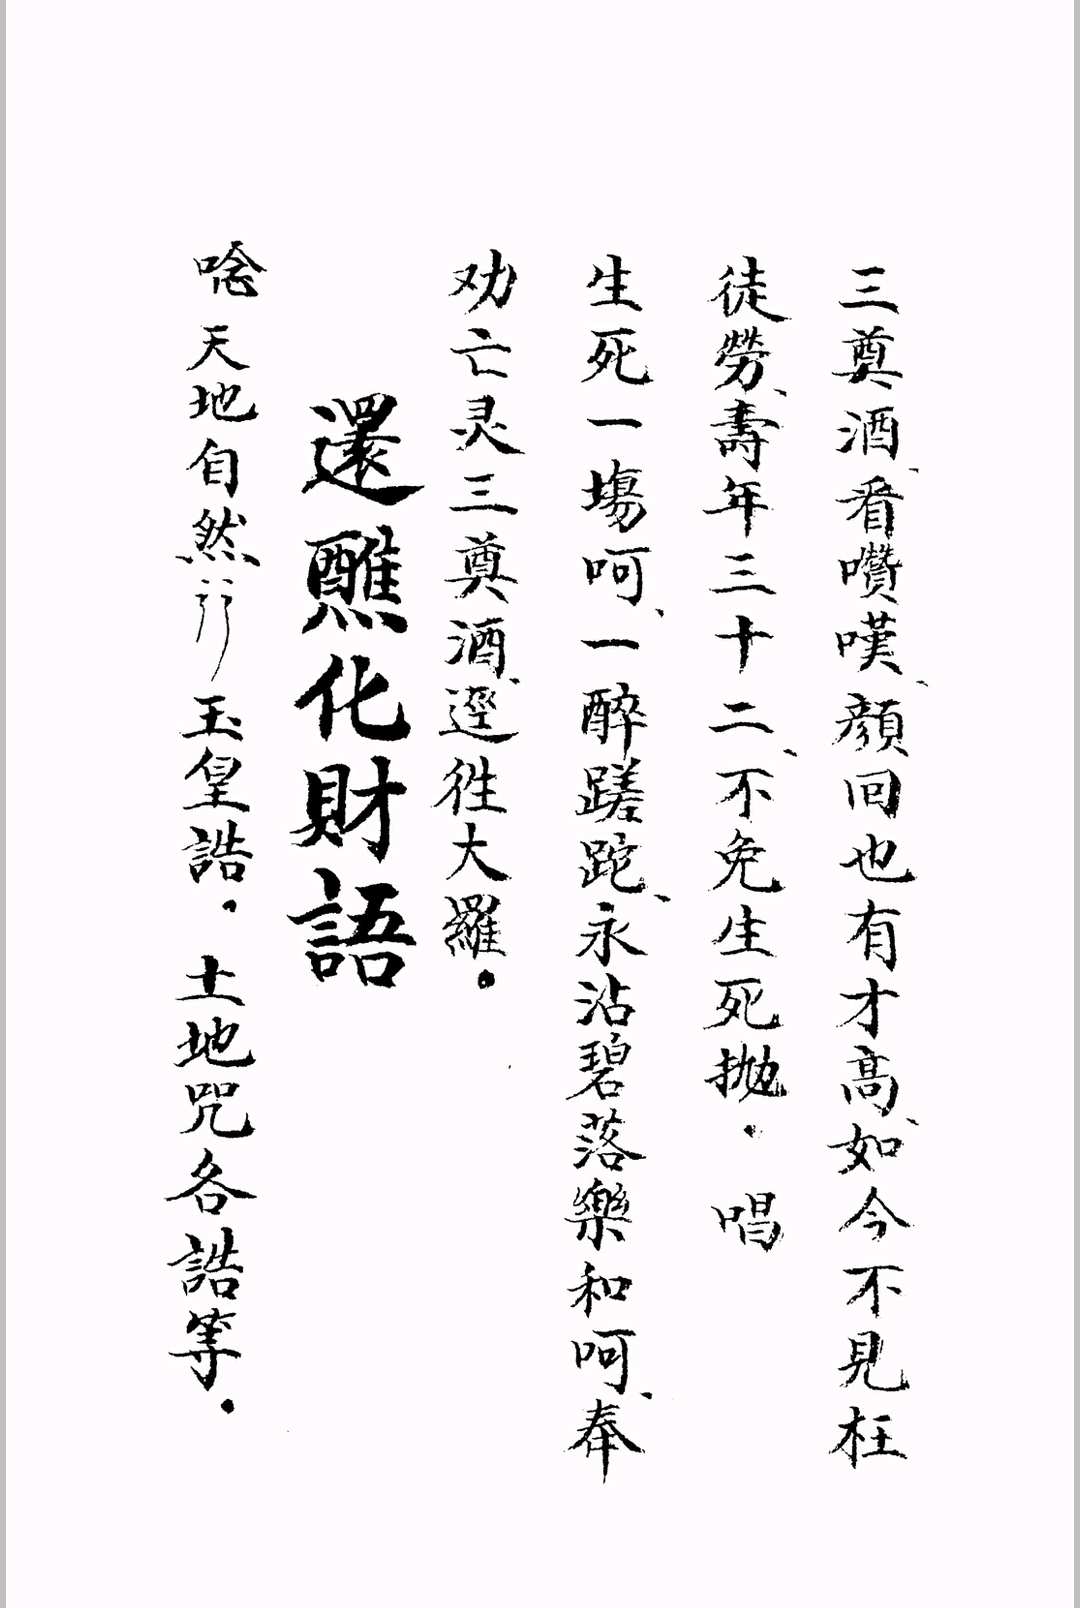 三奠酒、看嚽嘆、顔回也有才高、如今不見枉
徒勞、壽年三十二、不免生死抛。唱
生死一塲呵、一醉蹉跎、永沾碧落樂和呵、奉
劝亡灵三奠酒、逕徃大羅。
還醮化財語
唸天地自然玉皇誥。土地咒各誥等。